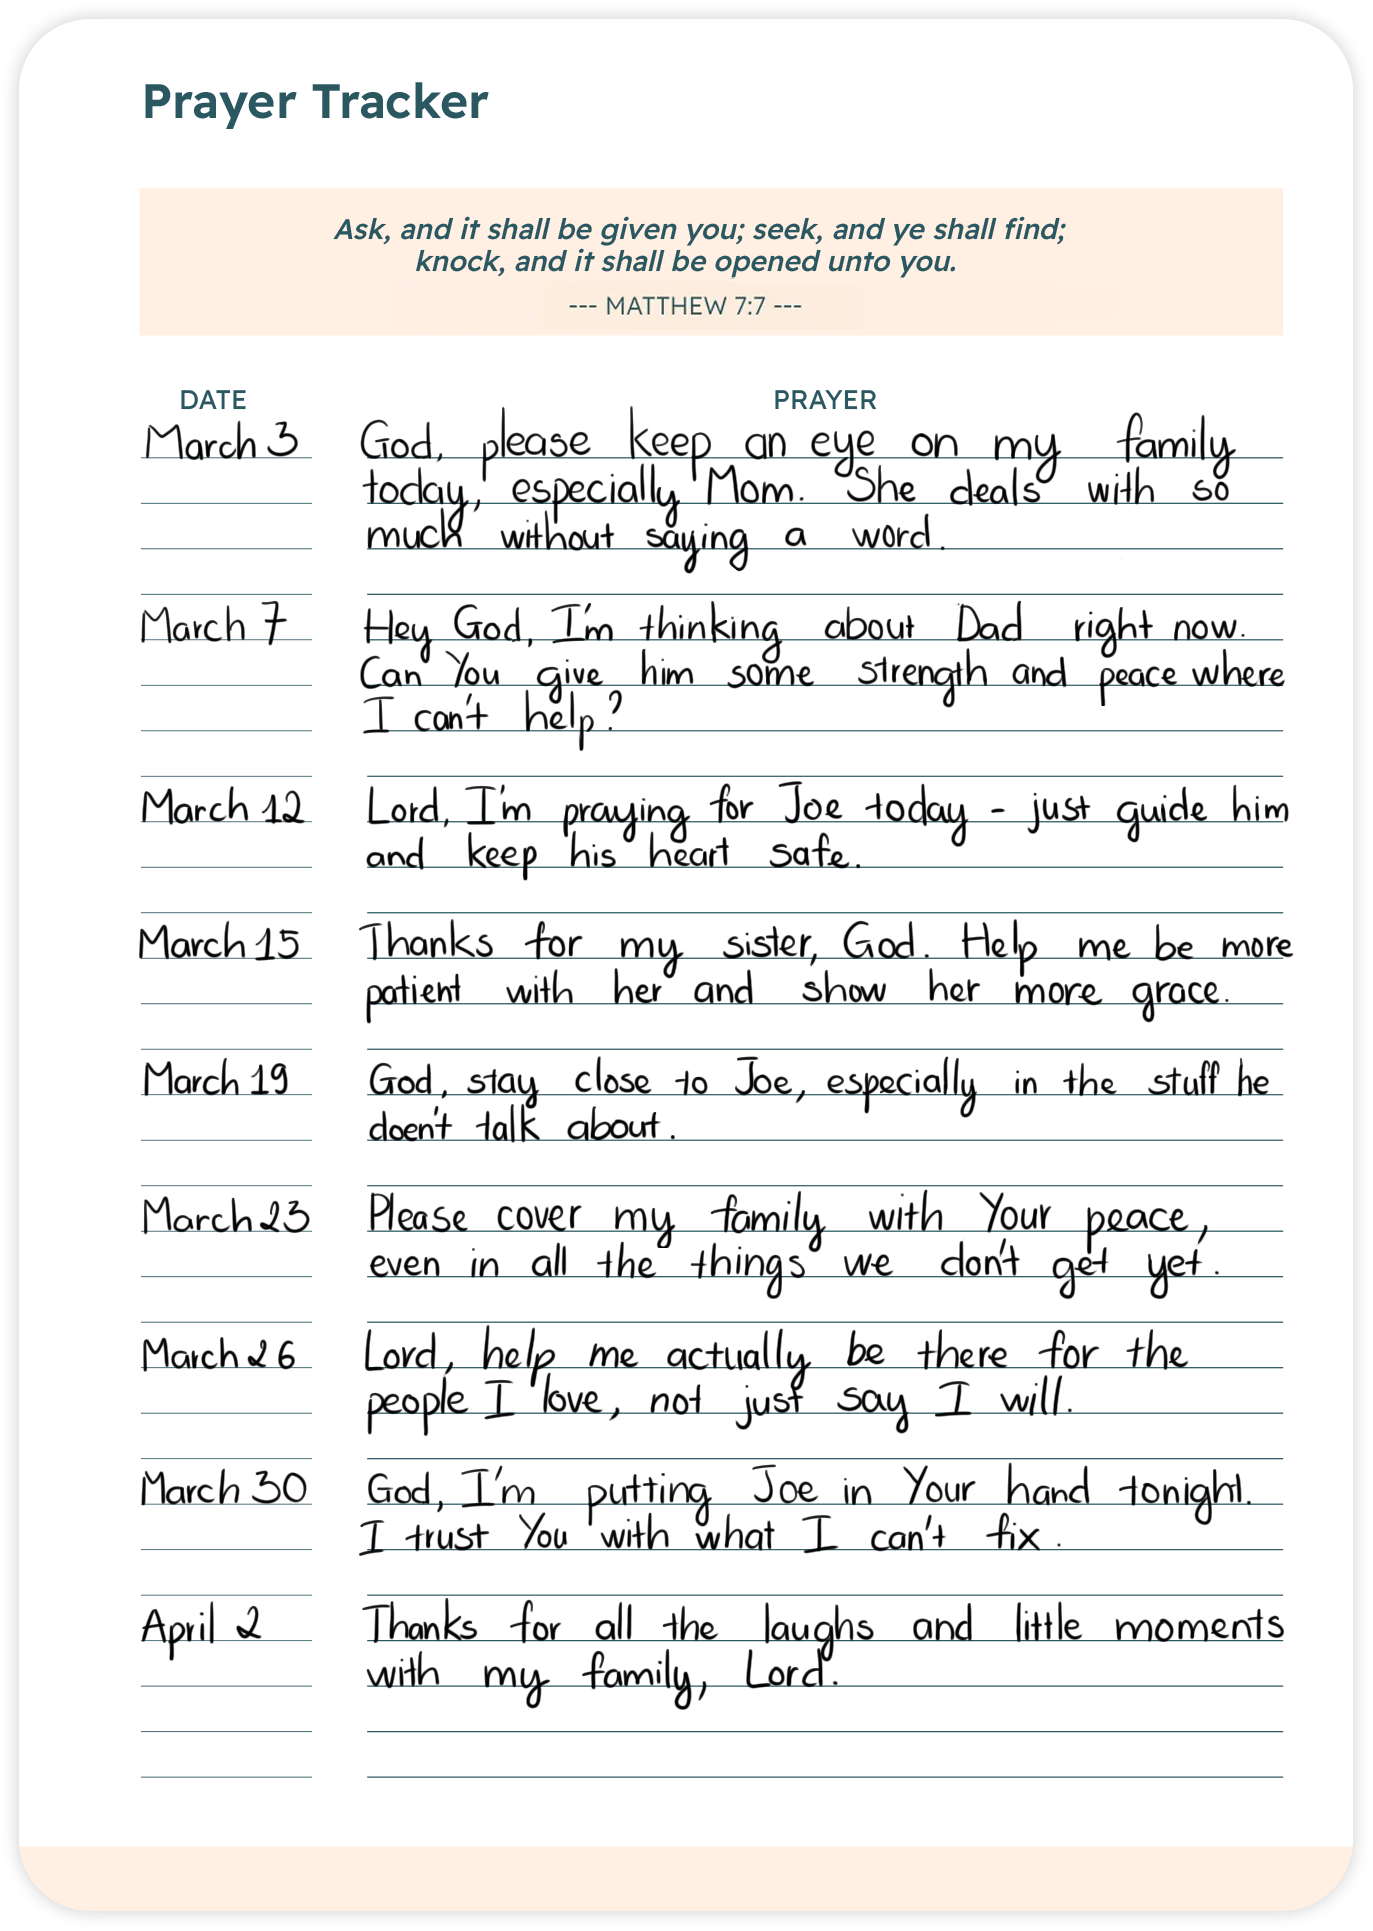 Prayer Tracker
Ask, and it shall be given you; seek, and ye shall find;
knock, and it shall be opened unto you.
--- MATTHEW 7:7 ---
DATE PRAYER
March 3 God, please keep an eye on my family
today, especially Mom. She deals with so
much without saying a word.
March 7 Hey God, I'm thinking about Dad right now.
Can You give him some strength and peace where
I can't help?
March 12 Lord, I'm praying for Joe today - just guide him
and keep his heart safe.
March 15 Thanks for my sister, God. Help me be more
patient with her and show her more grace.
March 19 God, stay close to Joe, especially in the stuff he
doen't talk about.
March 23 Please cover my family with Your peace,
even in all the things we don't get yet.
March 26 Lord, help me actually be there for the
people I love, not just say I will.
March 30 God, I'm putting Joe in Your hand tonight.
I trust You with what I can't fix.
April 2 Thanks for all the laughs and little moments
with my family, Lord.